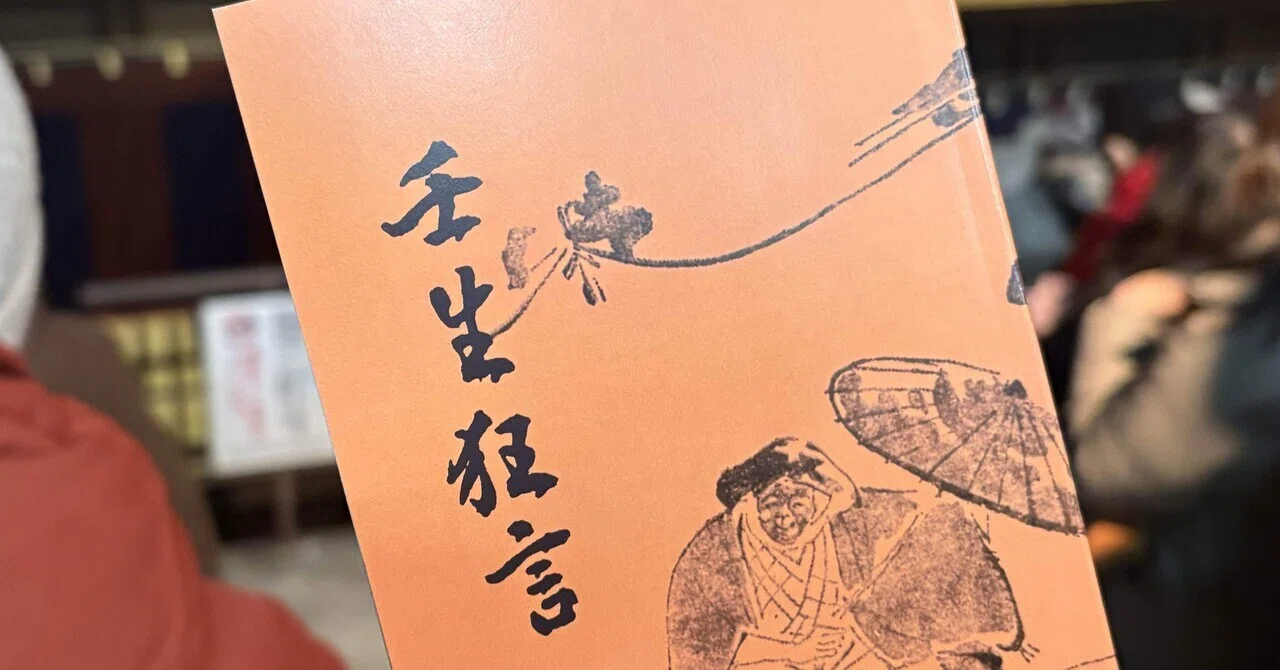 壬生狂言